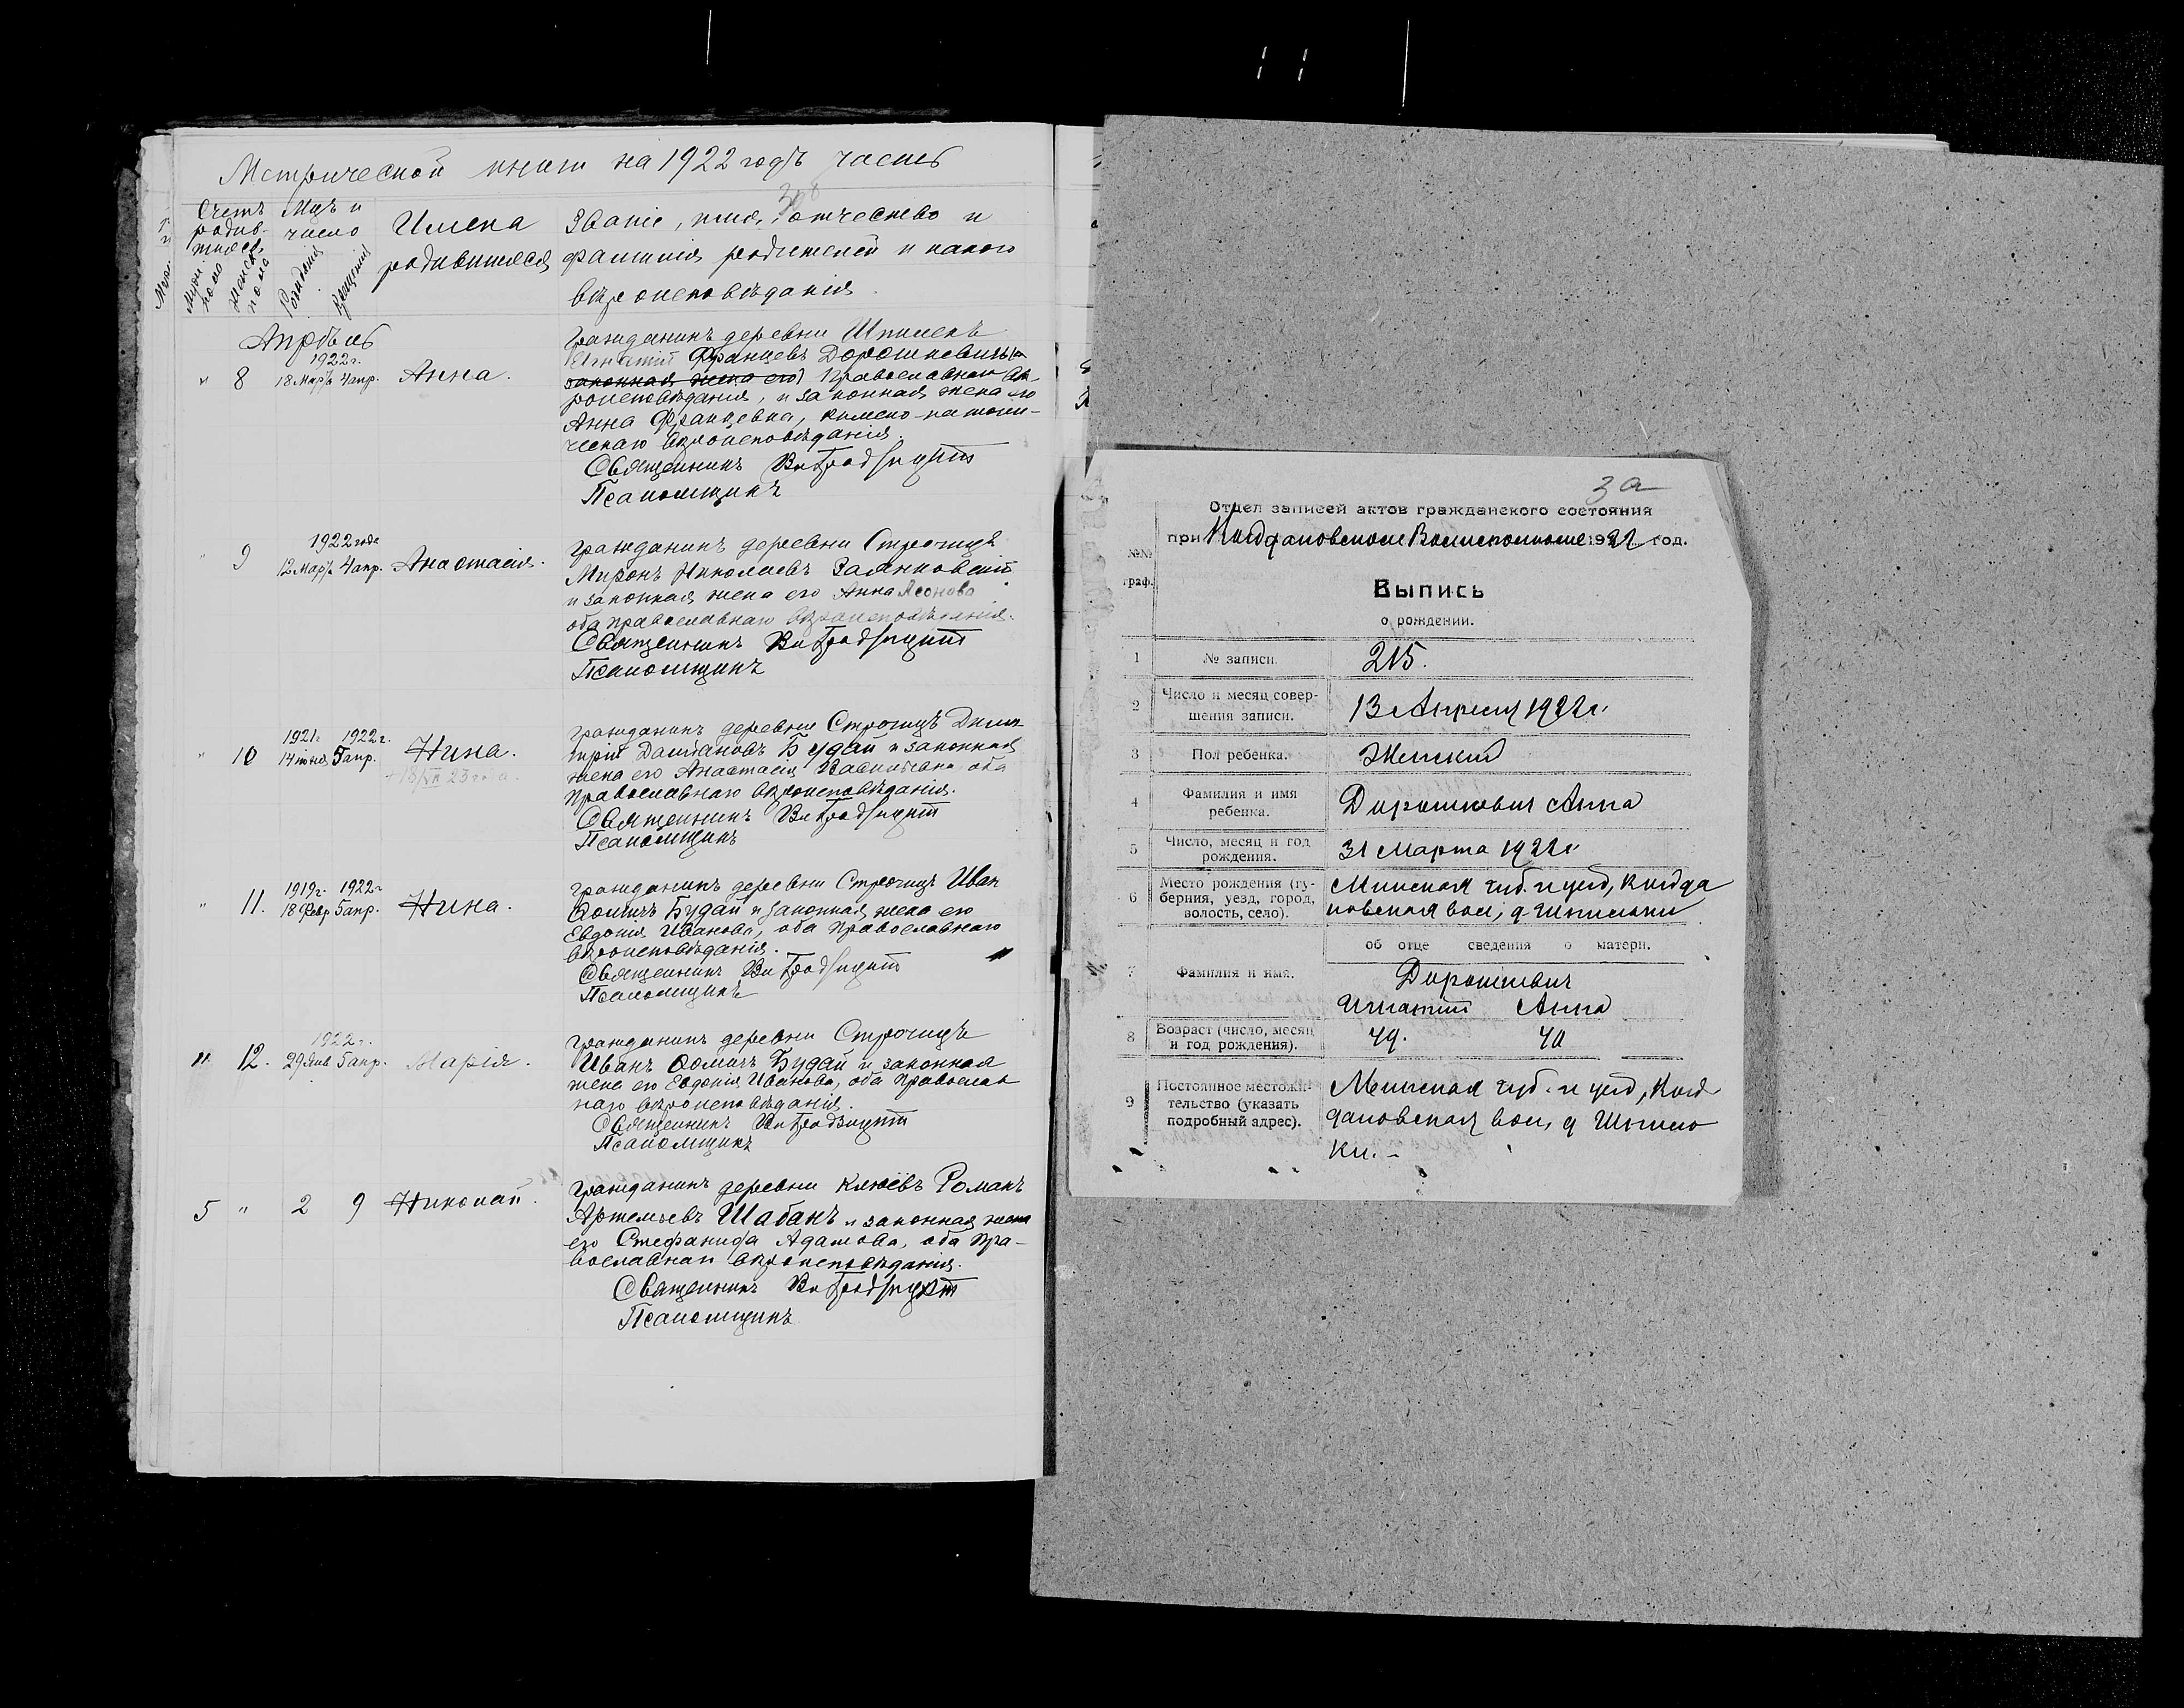 Метрической книги на 1922 годъ часть
Счетъ родив-
шихся
Муж. пола
Женск. пола
Мцъ и число
Рожденія
Крещенія
Имена
родившихся
Званіе, имя, отчество и
фамилія родителей и какого
вѣроисповѣданія.
Апрѣль
" 8
1922 г.
18 Мар. 4 апр.
Анна.
Гражданинъ деревни Шпилекъ
Игнатій Францевъ Дорошкевичъ
законная жена его православнаго вѣ-
роисповѣданія, и законная жена его
Анна Францевна, римско-католи-
ческаго вѣроисповѣданія.
Священникъ
Псаломщикъ
" 9
1922 года
12 Мар. 4 апр.
Анастасія.
Гражданинъ деревни Строчицъ
Миронъ Николаевъ
и законная жена его Анна
оба православнаго вѣроисповѣданія.
Священникъ
Псаломщикъ
" 10
1921 г. 1922 г.
14 іюня 5 апр.
Нина.
Гражданинъ деревни Строчицъ Дими-
трій Даміановъ Будай и законная
жена его Анастасія Васильева, оба
православнаго вѣроисповѣданія.
Священникъ
Псаломщикъ
" 11.
1919 г. 1922 г.
18 Февр 5 апр.
Нина.
Гражданинъ деревни Строчицъ Иван
Ѳомичъ Будай и законная жена его
Евдокія Иванова, оба православнаго
вѣроисповѣданія.
Священникъ
Псаломщикъ
" 12.
1922 г.
29 Янв 5 апр.
Марія.
Гражданинъ деревни Строчицъ
Иванъ Ѳомичъ Будай и законная
жена его Евдокія Иванова, оба православ
наго вѣроисповѣданія.
Священникъ
Псаломщикъ
5 "
2 9
Николай.
Гражданинъ деревни Клюевъ Романъ
Артемьевъ Шабанъ и законная жена
его Стефанида Адамова, оба пра-
вославнаго вѣроисповѣданія.
Священникъ
Псаломщикъ
3а
Отдел записей актов гражданского состояния
при Койдановском Волисполкоме 1922 год.
№№
граф.
Выпись
о рождении.
1 № записи. 215.
2 Число и месяц совер-
шения записи. 13 Апреля 1922 г.
3 Пол ребенка. Женский
4 Фамилия и имя
ребенка. Дорошкевич Анна
5 Число, месяц и год
рождения. 31 Марта 1922 г.
6 Место рождения (гу-
берния, уезд, город,
волость, село).
Минская губ. и уезд, Койда
новская вол, д. Шпильки
об отце сведения о матери.
7 Фамилия и имя. Дорошкевич
Игнатий Анна
8 Возраст (число, месяц
и год рождения). 49. 40
9 Постоянное местожи-
тельство (указать
подробный адрес).
Минская губ. и уезд, Кой-
дановская вол, д Шпиль
ки. -